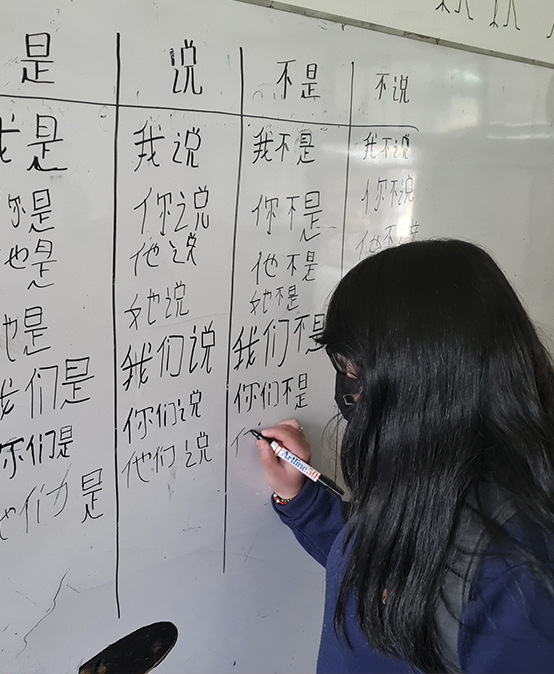 是 说 不是 不说
我是 我说 我不是 我不说
你是 你说 你不是 你不说
他是 他说 他不是 他不说
她是 她说 她不是
我们是 我们说 我们不是
你们是 你们说 你们不是
他们是 他们说
Artline 50